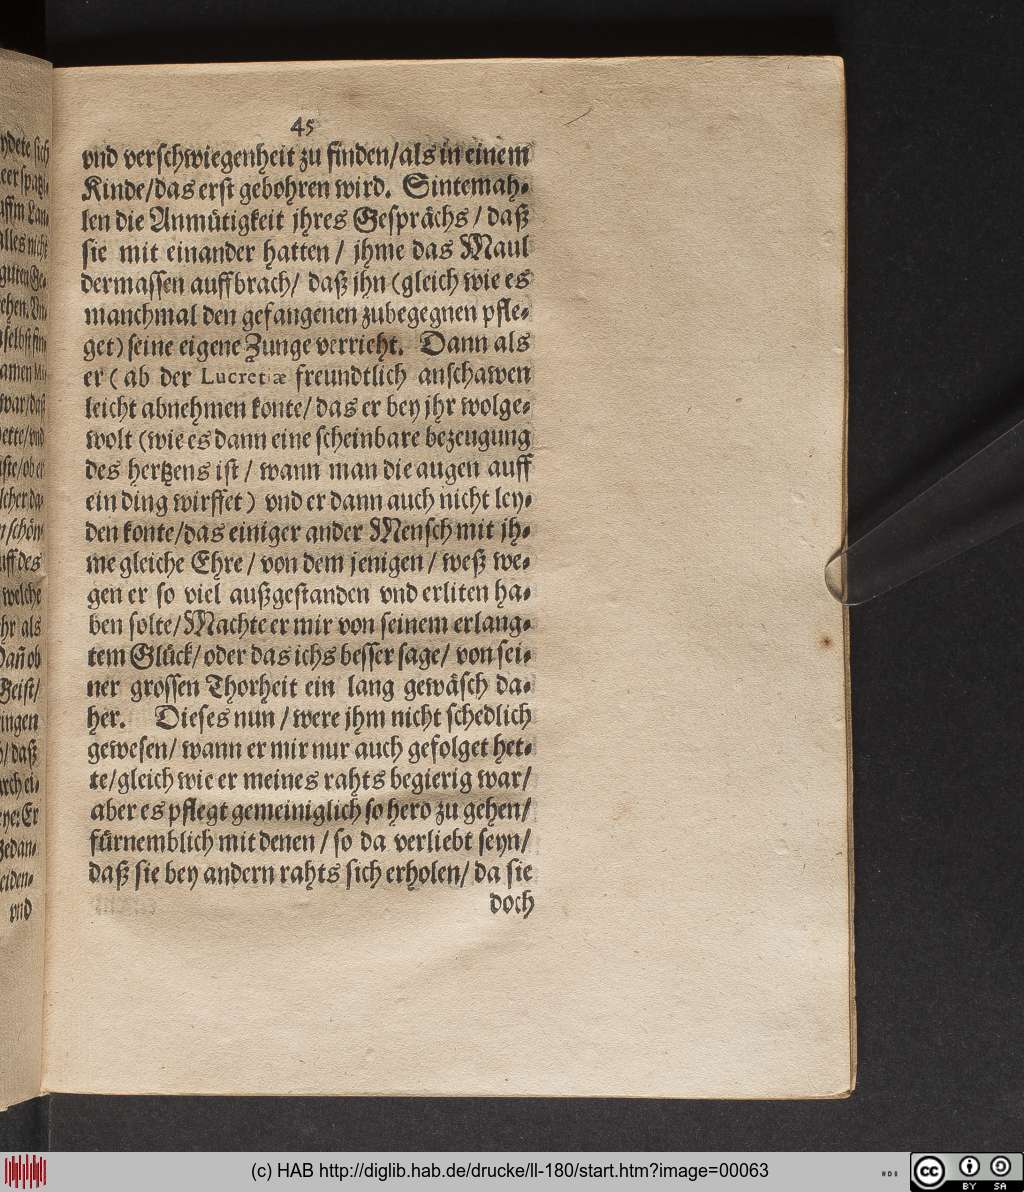 45
vnd verschwiegenheit zu finden/als in einem
Kinde/das erst gebohren wird. Sintemah-
len die Anmütigkeit jhres Gesprächs/ daß
sie mit einander hatten/ jhme das Maul
dermassen auffbrach/ daß jhn (gleich wie es
manchmal den gefangenen zubegegnen pfle-
get) seine eigene Zunge verrieht. Dann als
er (ab der Lucretiæ freundtlich anschawen
leicht abnehmen konte/ das er bey jhr wolge-
wolt (wie es dann eine scheinbare bezeugung
des hertzens ist/ wann man die augen auff
ein ding wirffet) vnd er dann auch nicht ley-
den konte/das einiger ander Mensch mit jh-
me gleiche Ehre/ von dem jenigen/ weß we-
gen er so viel außgestanden vnd erliten ha-
ben solte/ Machte er mir von seinem erlang-
tem Glück/ oder das ichs besser sage/ von sei-
ner grossen Thorheit ein lang gewäsch da-
her. Dieses nun/ were jhm nicht schedlich
gewesen/ wann er mir nur auch gefolget het-
te/gleich wie er meines rahts begierig war/
aber es pflegt gemeiniglich so hero zu gehen/
fürnemblich mit denen/ so da verliebt seyn/
daß sie bey andern rahts sich erholen/ da sie
doch
(c) HAB http://diglib.hab.de/drucke/ll-180/start.htm?image=00063
CC BY SA